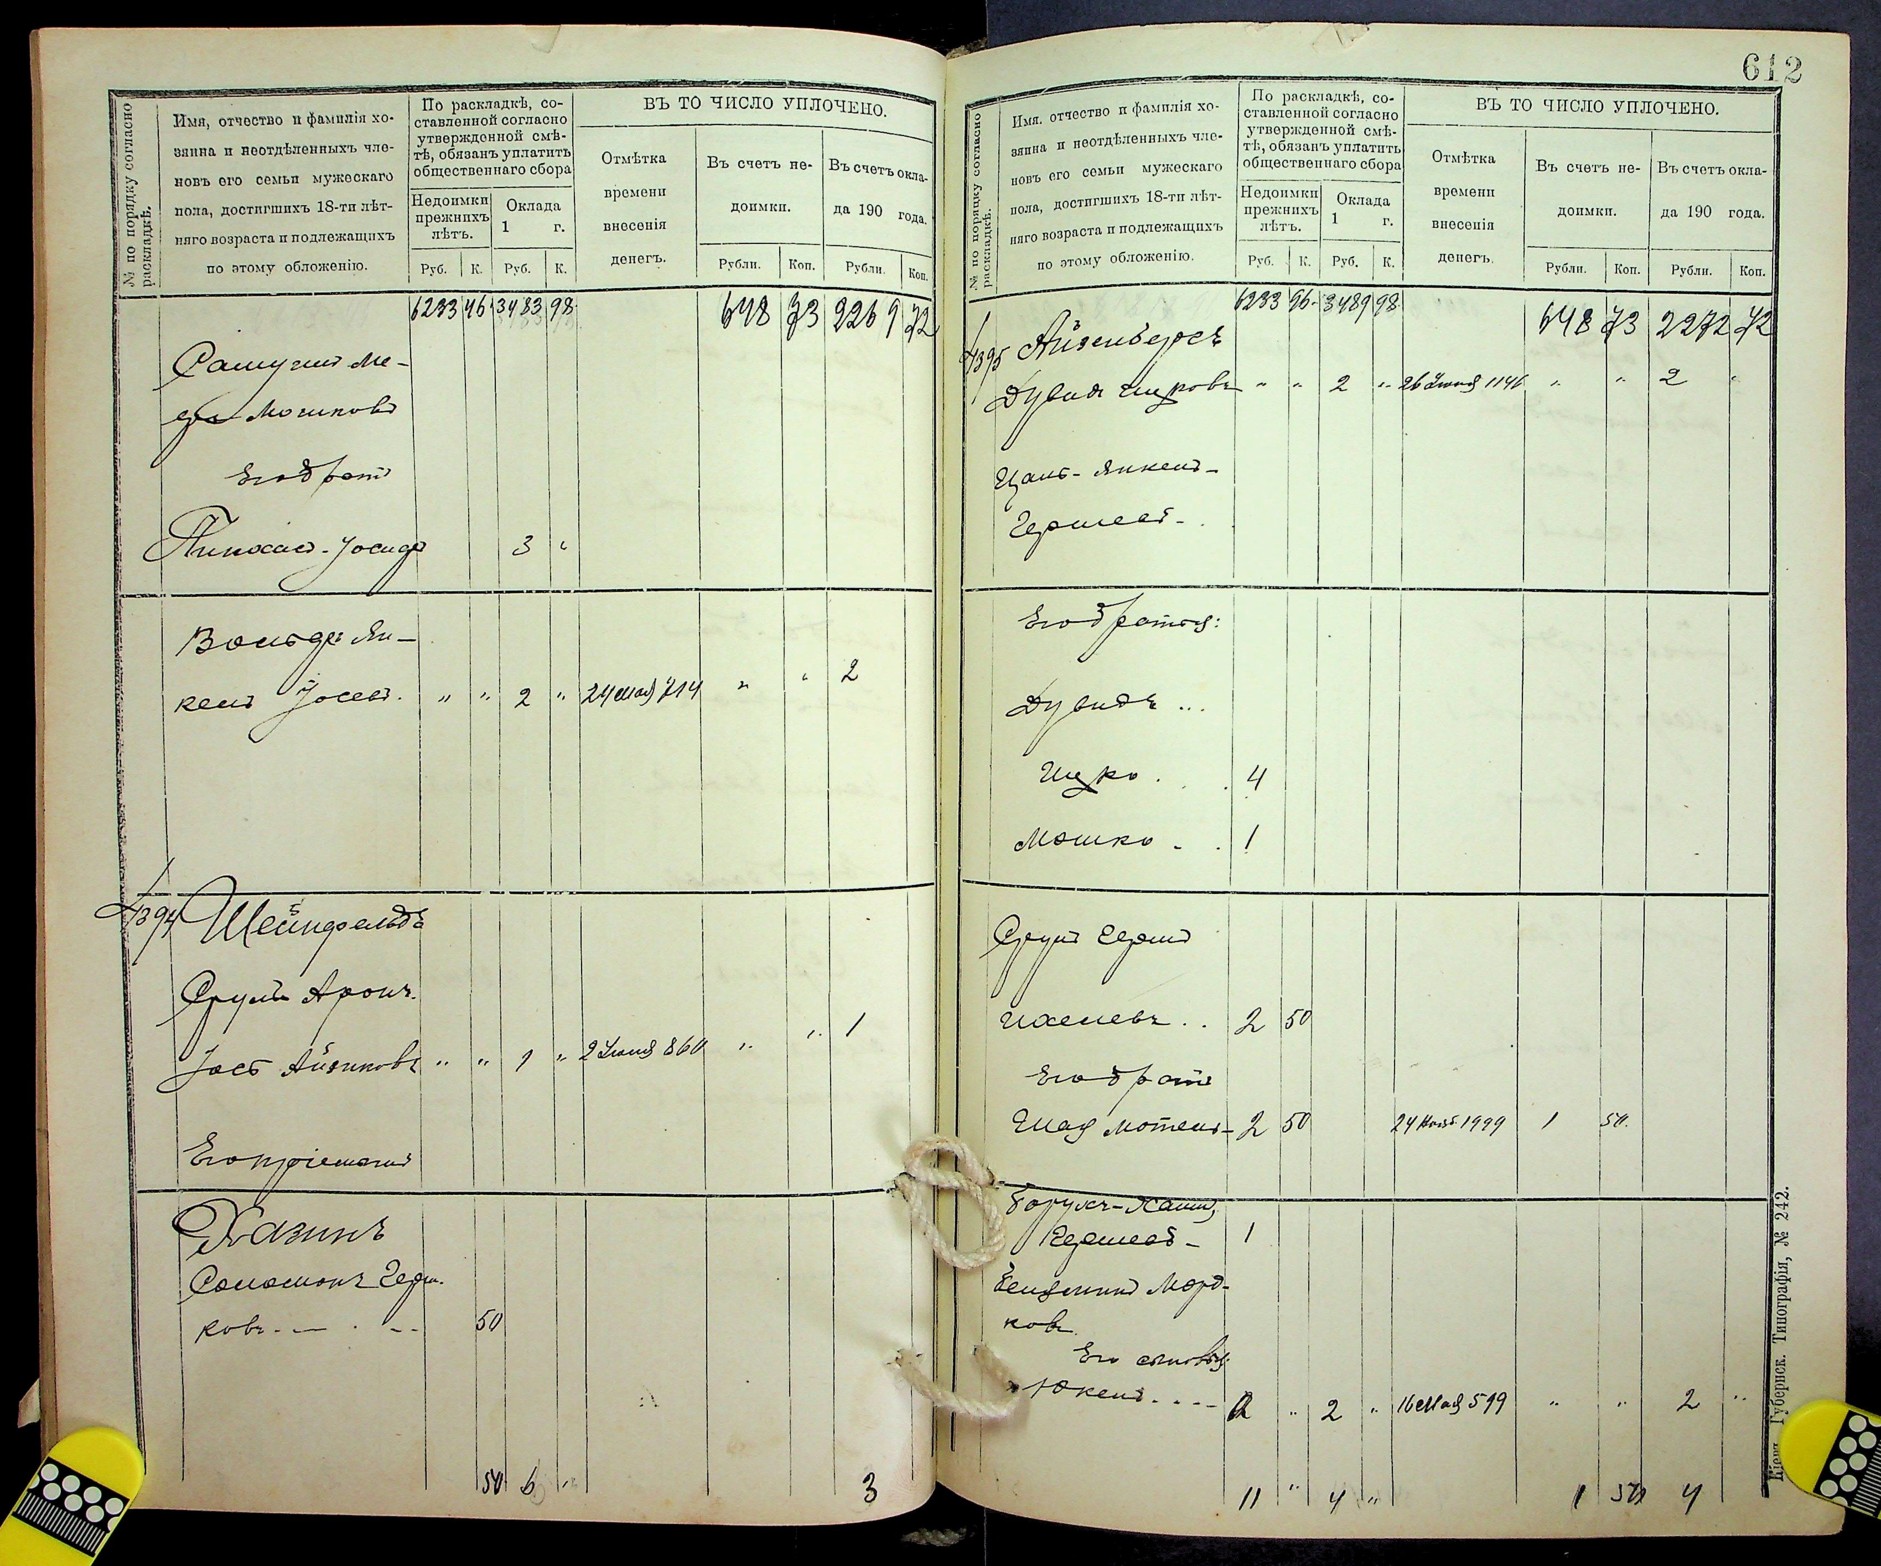 № по порядку согласно раскладкѣ.
Имя, отчество и фамилія хо-
зяина и неотдѣленныхъ чле-
новъ его семьи мужескаго
пола, достигшихъ 18-ти лѣт-
няго возраста и подлежащихъ
по этому обложенію.
По раскладкѣ, со-
ставленной согласно
утвержденной смѣ-
тѣ, обязанъ уплатить
общественнаго сбора
Недоимки
прежнихъ
лѣтъ.
Оклада
1 г.
Руб. К. Руб. К.
ВЪ ТО ЧИСЛО УПЛОЧЕНО.
Отмѣтка
времени
внесенія
денегъ.
Въ счетъ не-
доимки.
Въ счетъ окла-
да 190 года.
Рубли. Коп. Рубли. Коп.
6233 46 3483 98 648 73 2269 72
Его братъ
3 "
Вольфъ Ян-
кель Іосев. " " 2 " 24 Мая 714 " " 2
4394 Шейнфельдъ
Сруль Арон.
Іось Айзиковъ " " 1 " 2 Іюня 860 " " 1
Его пріемышъ
Хазинъ
Соломонъ Герш-
ковъ 50
50 6 " 3
612
№ по порядку согласно раскладкѣ.
Имя, отчество и фамилія хо-
зяина и неотдѣленныхъ чле-
новъ его семьи мужескаго
пола, достигшихъ 18-ти лѣт-
няго возраста и подлежащихъ
по этому обложенію.
По раскладкѣ, со-
ставленной согласно
утвержденной смѣ-
тѣ, обязанъ уплатить
общественнаго сбора
Недоимки
прежнихъ
лѣтъ.
Оклада
1 г.
Руб. К. Руб. К.
ВЪ ТО ЧИСЛО УПЛОЧЕНО.
Отмѣтка
времени
внесенія
денегъ.
Въ счетъ не-
доимки.
Въ счетъ окла-
да 190 года.
Рубли. Коп. Рубли. Коп.
6233 96 3489 98 648 73 2272 72
4395 Айзенбергъ
Дувидъ Ицковъ " " 2 " 26 Іюня 1146 " " 2 "
Янкель-
Гершков.
Его братья:
Дувидъ
Ицко 4
Мошко 1
Сруль Герш
Ихелевъ 2 50
Его братъ
Шая Мотель 2 50 24 Нояб 1999 1 50
Борухъ-Хаим,
Гершков- 1
Беньяминъ Морд-
ковъ
Его сыновья:
Юкель 2 " 2 " 16 Мая 599 " " 2 "
11 " 4 " 1 50 4
Кіевъ. Губернск. Типографія, № 242.